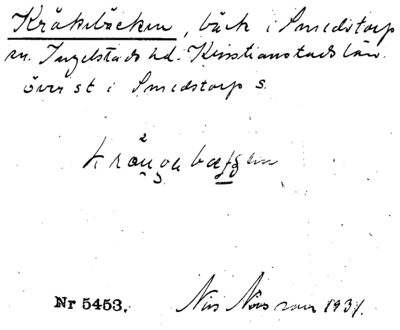 Kråkebäcken, bäck i Smedstorp
sn. Ingelstads hd. Kristianstads län.
överst i Smedstorp s.
Nr 5453. Nils Nilsson 1931.